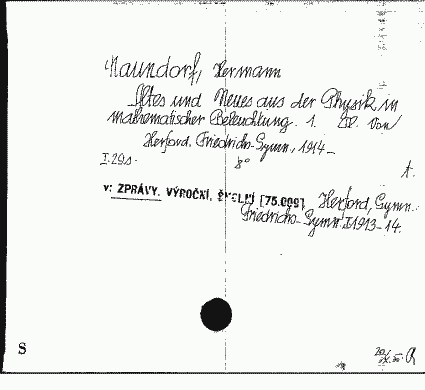 Naundorf, Hermann
Altes und Neues aus der Physik in
mathematischer Beleuchtung. 1. Von
Herford. Friedrichs-Gymn., 1914-
I.29s. 8° t.
v: ZPRÁVY, VÝROČNÍ, ŠKOLNÍ [75.009], Herford, Gymn.
Friedrichs-Gymn. I 1913-14.
S